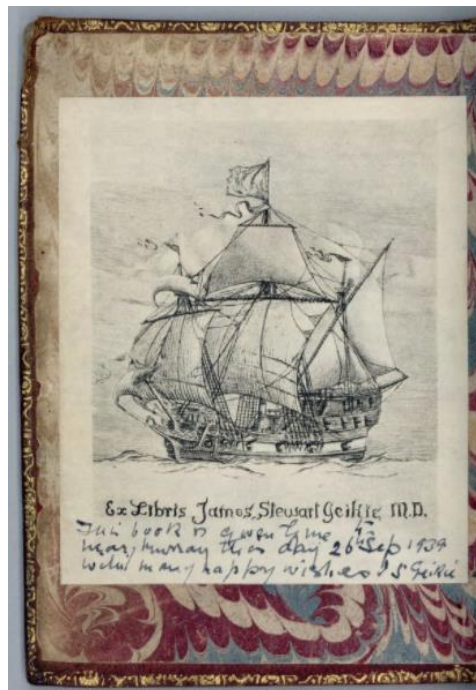 Ex Libris James, Stewart Geikie M.D.
This book is given by me to
Mary Murray this day 26 Sep 1939
with many happy wishes J S Geikie